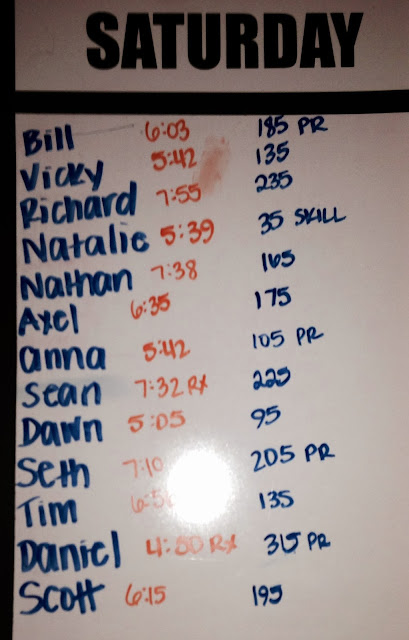 SATURDAY
Bill 6:03 185 PR
Vicky 5:42 135
Richard 7:55 235
Natalie 5:39 35 SKILL
Nathan 7:38 165
Axel 6:35 175
anna 5:42 105 PR
Sean 7:32 RX 225
Dawn 5:05 95
Seth 7:10 205 PR
Tim 135
Daniel 4:50 RX 315 PR
Scott 6:15 195